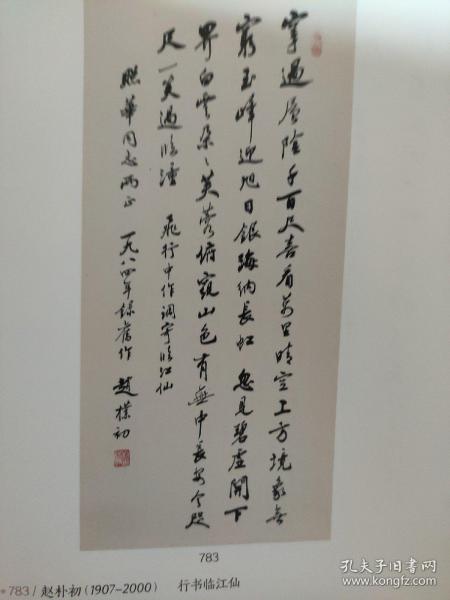 穿過層陰千百尺喜看萬里晴空上方境象無
窮玉峰迎旭日銀海納長虹 忽見碧虛開下
界白雲朵々芙蓉俯窺山色有無中長安今咫
尺一笑過臨潼 飛行中作調寄臨江仙
華同志兩正 一九八四年錄舊作 趙樸初
783
783 / 赵朴初 (1907-2000) 行书临江仙
孔夫子旧书网